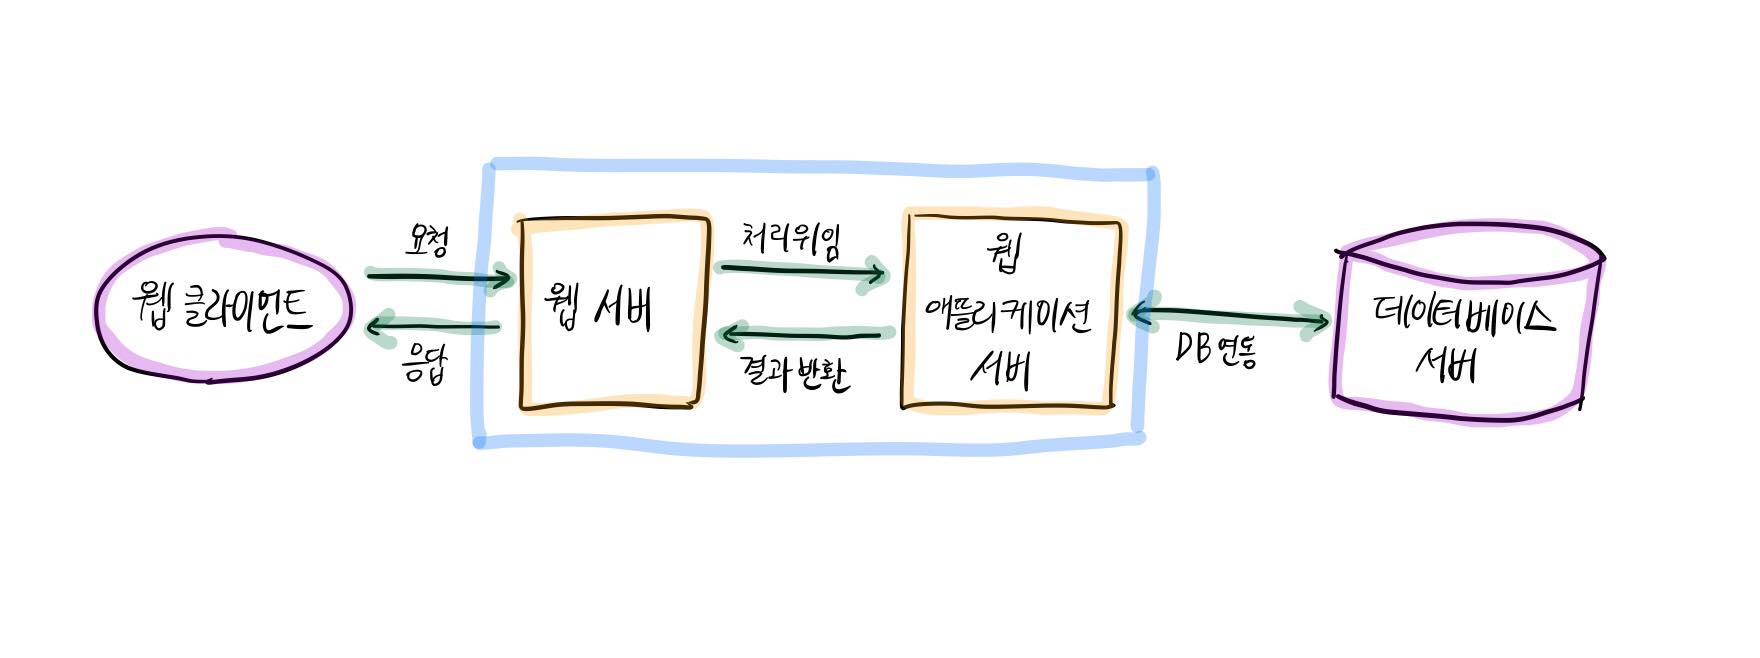 웹 클라이언트
요청
응답
웹 서버
처리위임
결과 반환
웹
애플리케이션
서버
DB 연동
데이터베이스
서버